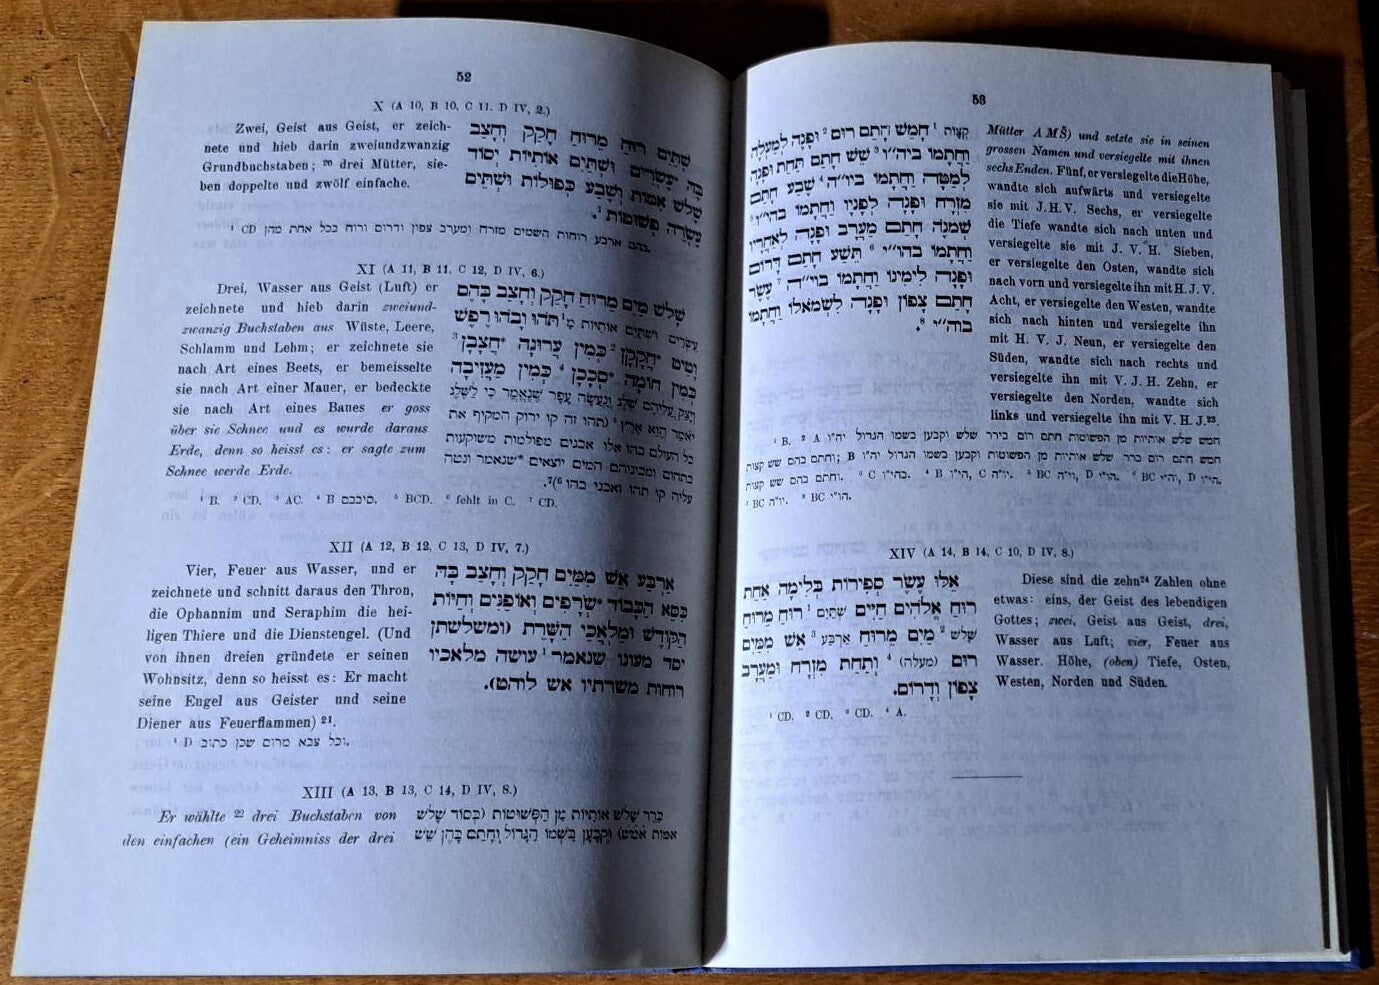 52
X (A 10, B 10, C 11. D IV, 2.)
Zwei, Geist aus Geist, er zeich-
nete und hieb darin zweiundzwanzig
Grundbuchstaben; 20 drei Mütter, sie-
ben doppelte und zwölf einfache.
שְׁתַּיִם רוּחַ מֵרוּחַ חָקַק וְחָצַב
בָּהּ עֶשְׂרִים וּשְׁתַּיִם אוֹתִיּוֹת יְסוֹד
שָׁלֹשׁ אִמּוֹת וְשֶׁבַע כְּפוּלוֹת וּשְׁתֵּים
עֶשְׂרֵה פְּשׁוּטוֹת 1.
1 CD בהם ארבע רוחות השמים מזרח ומערב צפון ודרום ורוח בכל אחת מהן.
XI (A 11, B 11, C 12, D IV, 6.)
Drei, Wasser aus Geist (Luft) er
zeichnete und hieb darin zweiund-
zwanzig Buchstaben aus Wüste, Leere,
Schlamm und Lehm; er zeichnete sie
nach Art eines Beets, er bemeisselte
sie nach Art einer Mauer, er bedeckte
sie nach Art eines Baues er goss
über sie Schnee und es wurde daraus
Erde, denn so heisst es: er sagte zum
Schnee werde Erde.
שָׁלֹשׁ מַיִם מֵרוּחַ חָקַק וְחָצַב בָּהֶם
עֶשְׂרִים וּשְׁתַּיִם אוֹתִיּוֹת מִ1תֹּהוּ וָבֹהוּ רֶפֶשׁ
וָטִיט חֲקָקָן 2 כְּמִין עֲרוּגָה חֲצָבָן 3
כְּמִין חוֹמָה סִכְּכָן 4 כְּמִין מַעֲזִיבָה
וְיָצַק עֲלֵיהֶם שֶׁלֶג וְנַעֲשָׂה עָפָר שֶׁנֶּאֱמַר כִּי לַשֶּׁלֶג
יֹאמַר הֱוֵא אָרֶץ 5 (תהו זה קו ירוק המקיף את
כל העולם בהו אלו אבנים מפולמות משוקעות
בתהום ומביניהם המים יוצאים שנאמר ונטה
עליה קו תהו ואבני בהו 6)7.
1 B. 2 CD. 3 AC. 4 B סיבכם. 5 BCD. 6 fehlt in C. 7 CD.
XII (A 12, B 12, C 13, D IV, 7.)
Vier, Feuer aus Wasser, und er
zeichnete und schnitt daraus den Thron,
die Ophannim und Seraphim die hei-
ligen Thiere und die Dienstengel. (Und
von ihnen dreien gründete er seinen
Wohnsitz, denn so heisst es: Er macht
seine Engel aus Geister und seine
Diener aus Feuerflammen) 21.
אַרְבַּע אֵשׁ מִמַּיִם חָקַק וְחָצַב בָּהּ
כִּסֵּא הַכָּבוֹד שְׂרָפִים וְאוֹפַנִּים וְחַיּוֹת
הַקּוֹדֶשׁ וּמַלְאֲכֵי הַשָּׁרֵת (ומשלשתן
יסד מעונו שנאמר 1 עושה מלאכיו
רוחות משרתיו אש לוהט).
1 D וכל צבא מרום שכן כתוב.
XIII (A 13, B 13, C 14, D IV, 8.)
Er wählte 22 drei Buchstaben von
den einfachen (ein Geheimniss der drei
בֵּרַר שָׁלֹשׁ אוֹתִיּוֹת מִן הַפְּשׁוּטוֹת (בְּסוֹד שָׁלֹשׁ
אִמּוֹת אמ״ש) וּקְבָעָן בִּשְׁמוֹ הַגָּדוֹל וְחָתַם בָּהֶן שֵׁשׁ
53
קְצָוֹת 1 חָמֵשׁ חָתַם רוּם 2 וּפָנָה לְמַעְלָה
וַחֲתָמוֹ בְּיה״ו 3 שֵׁשׁ חָתַם תַּחַת וּפָנָה
לְמַטָּה וַחֲתָמוֹ בְּיו״ה 4 שֶׁבַע חָתַם
מִזְרָח וּפָנָה לְפָנָיו וַחֲתָמוֹ בְּהי״ו 5
שְׁמוֹנֶה חָתַם מַעֲרָב וּפָנָה לְאַחֲרָיו
וַחֲתָמוֹ בְּהו״י 6 תֵּשַׁע חָתַם דָּרוֹם
וּפָנָה לִימִינוֹ וַחֲתָמוֹ בְּוי״ה 7 עֶשֶׂר
חָתַם צָפוֹן וּפָנָה לִשְׂמֹאלוֹ וַחֲתָמוֹ
בְּוה״י 8.
Mütter AMŠ) und setzte sie in seinen
grossen Namen und versiegelte mit ihnen
sechs Enden. Fünf, er versiegelte die Höhe,
wandte sich aufwärts und versiegelte
sie mit J. H. V. Sechs, er versiegelte
die Tiefe wandte sich nach unten und
versiegelte sie mit J. V. H. Sieben,
er versiegelte den Osten, wandte sich
nach vorn und versiegelte ihn mit H. J. V.
Acht, er versiegelte den Westen, wandte
sich nach hinten und versiegelte ihn
mit H. V. J. Neun, er versiegelte den
Süden, wandte sich nach rechts und
versiegelte ihn mit V. J. H. Zehn, er
versiegelte den Norden, wandte sich
links und versiegelte ihn mit V. H. J.23.
1 B. 2 A חמש שלש אותיות מן הפשוטות חתם רום בירר שלש וקבען בשמו הגדול יה״ו
B חמש חתם רום ברר שלש אותיות מן הפשוטות וקבען בשמו הגדול יה״ו וחתם בהם שש קצות;
XIV (A 14, B 14, C 10, D IV, 8.)
אֵלּוּ עֶשֶׂר סְפִירוֹת בְּלִימָה אַחַת
רוּחַ אֱלֹהִים חַיִּים שְׁתַּיִם 1 רוּחַ מֵרוּחַ
שָׁלֹשׁ 2 מַיִם מֵרוּחַ אַרְבַּע 3 אֵשׁ מִמַּיִם
רוּם (מַעְלָה) 4 וְתַחַת מִזְרָח וּמַעֲרָב
צָפוֹן וְדָרוֹם.
Diese sind die zehn24 Zahlen ohne
etwas: eins, der Geist des lebendigen
Gottes; zwei, Geist aus Geist, drei,
Wasser aus Luft; vier, Feuer aus
Wasser. Höhe, (oben) Tiefe, Osten,
Westen, Norden und Süden.
1 CD. 2 CD. 3 CD. 4 A.